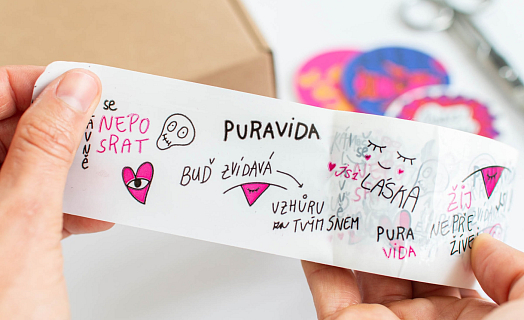 se
NEPO
SRAT
PURAVIDA
BUĎ ZVÍDAVÁ
VZHŮRU
za TVÝM SNEM
JSI
LÁSKA
PURA
VIDA
ŽIJ
NEPŘE
ŽÍVEJ